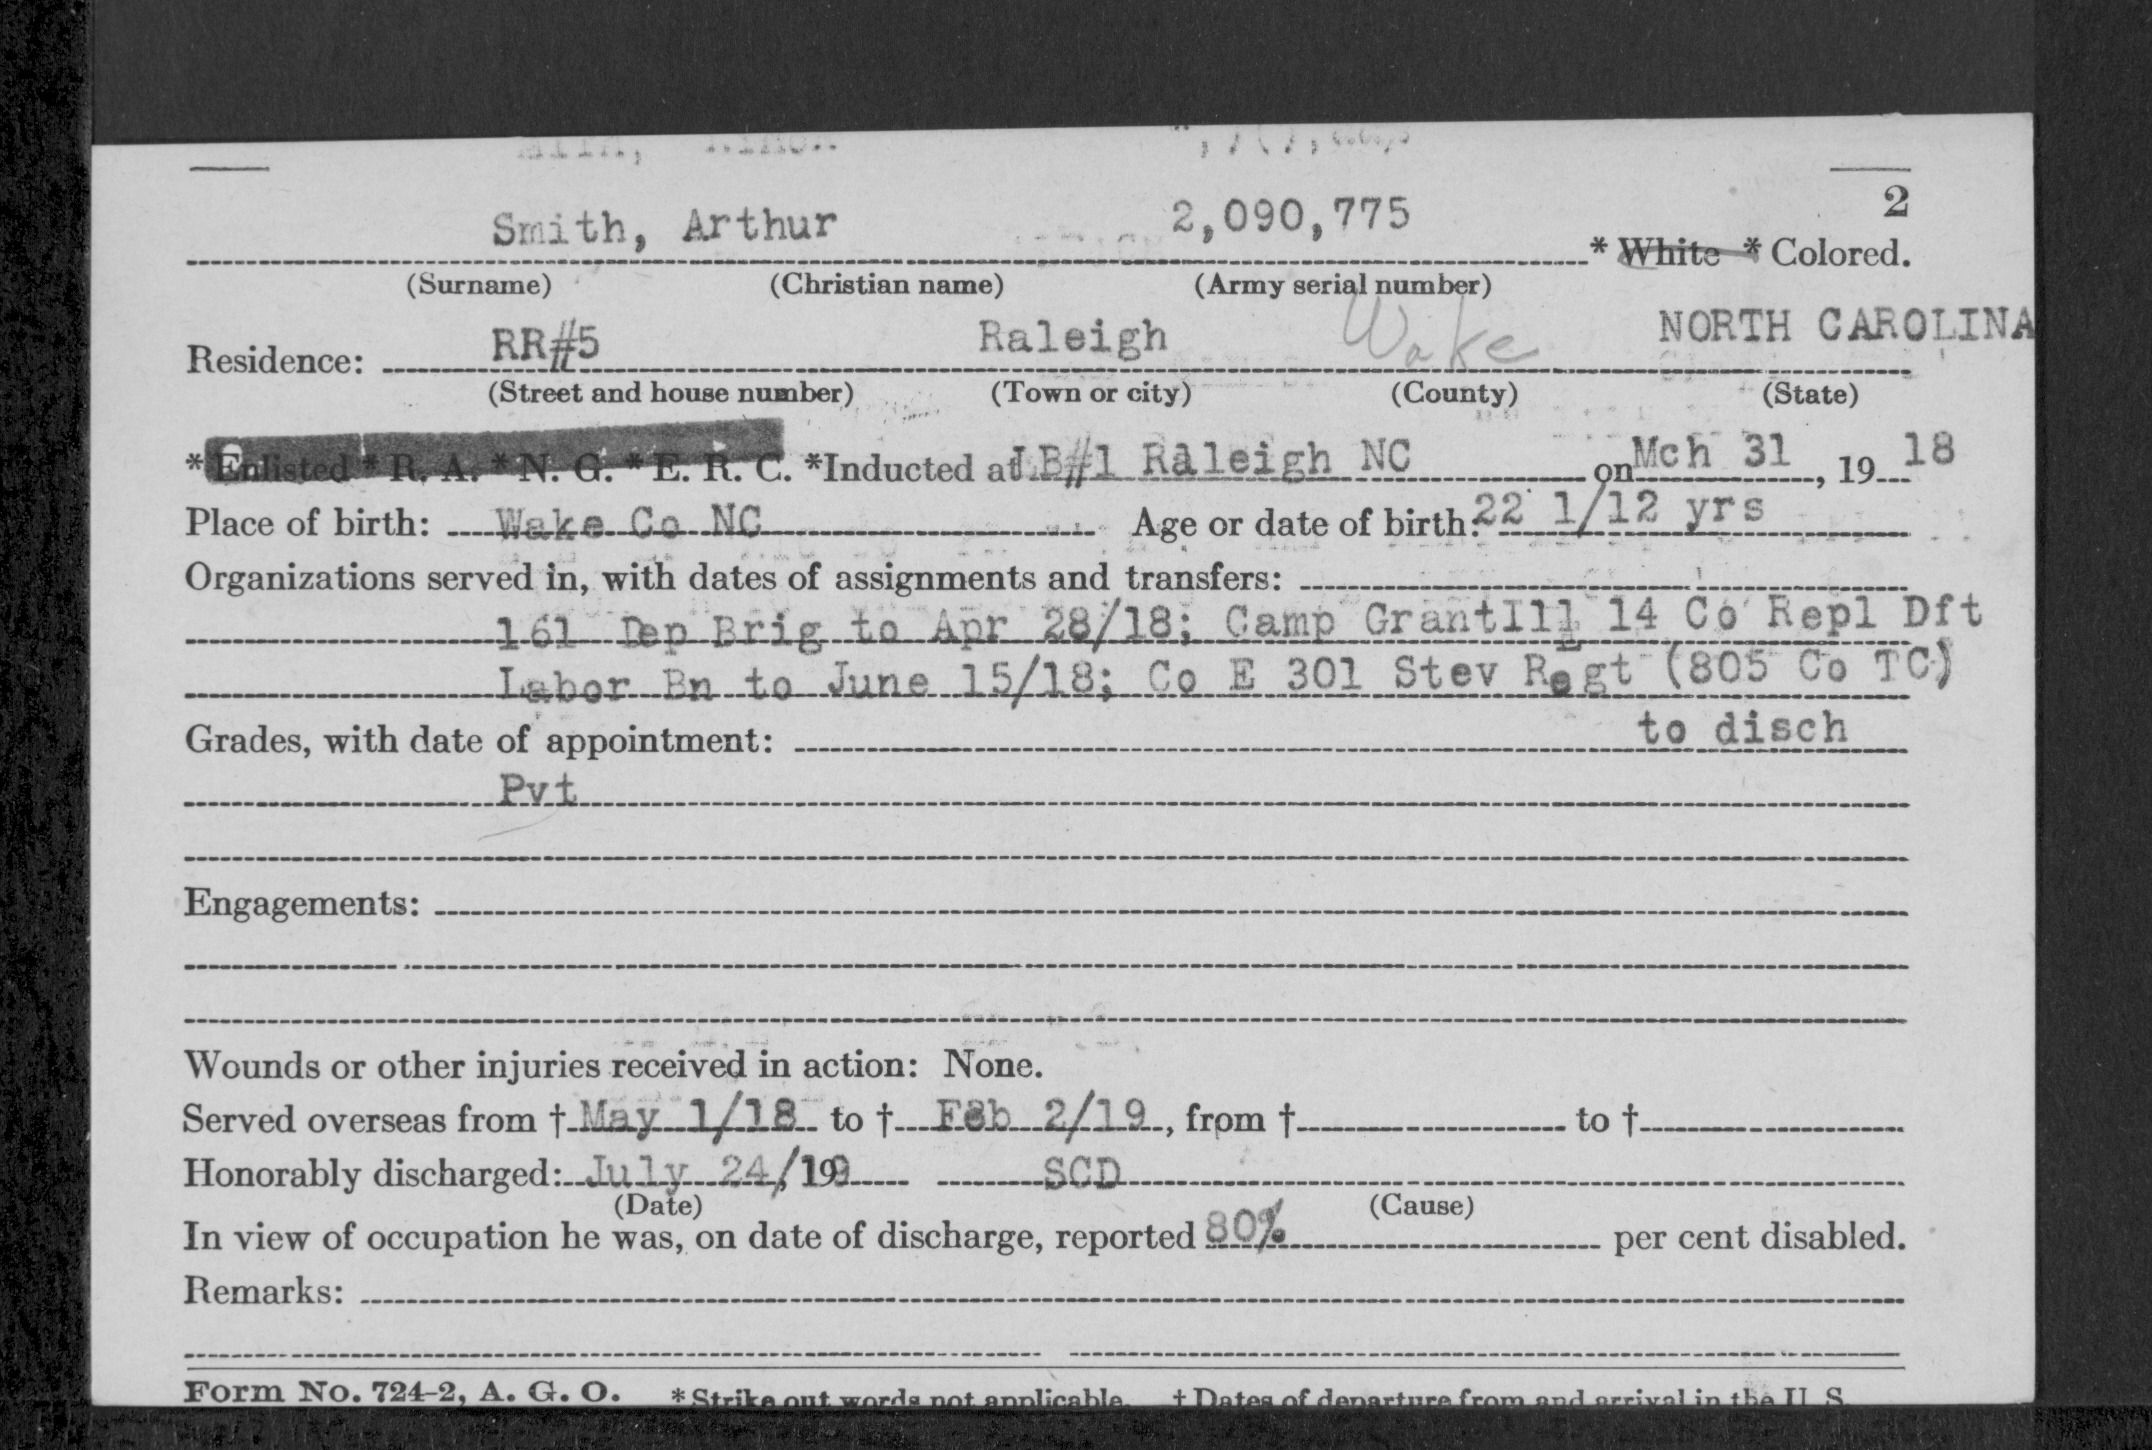 2
Smith, Arthur 2,090,775 * White * Colored.
(Surname) (Christian name) (Army serial number)
Residence: RR#5 Raleigh Wake NORTH CAROLINA
(Street and house number) (Town or city) (County) (State)
* Enlisted * R. A. * N. G. * E. R. C. *Inducted at LB#1 Raleigh NC on Mch 31, 19 18
Place of birth: Wake Co NC Age or date of birth: 22 1/12 yrs
Organizations served in, with dates of assignments and transfers:
161 Dep Brig to Apr 28/18; Camp Grant Ill 14 Co Repl Dft
Labor Bn to June 15/18; Co E 301 Stev Regt (805 Co TC)
to disch
Grades, with date of appointment:
Pvt
Engagements:
Wounds or other injuries received in action: None.
Served overseas from † May 1/18 to † Feb 2/19, from † to †
Honorably discharged: July 24/199 SCD
(Date) (Cause)
In view of occupation he was, on date of discharge, reported 80% per cent disabled.
Remarks:
Form No. 724-2, A. G. O. * Strike out words not applicable. † Dates of departure from and arrival in the U. S.